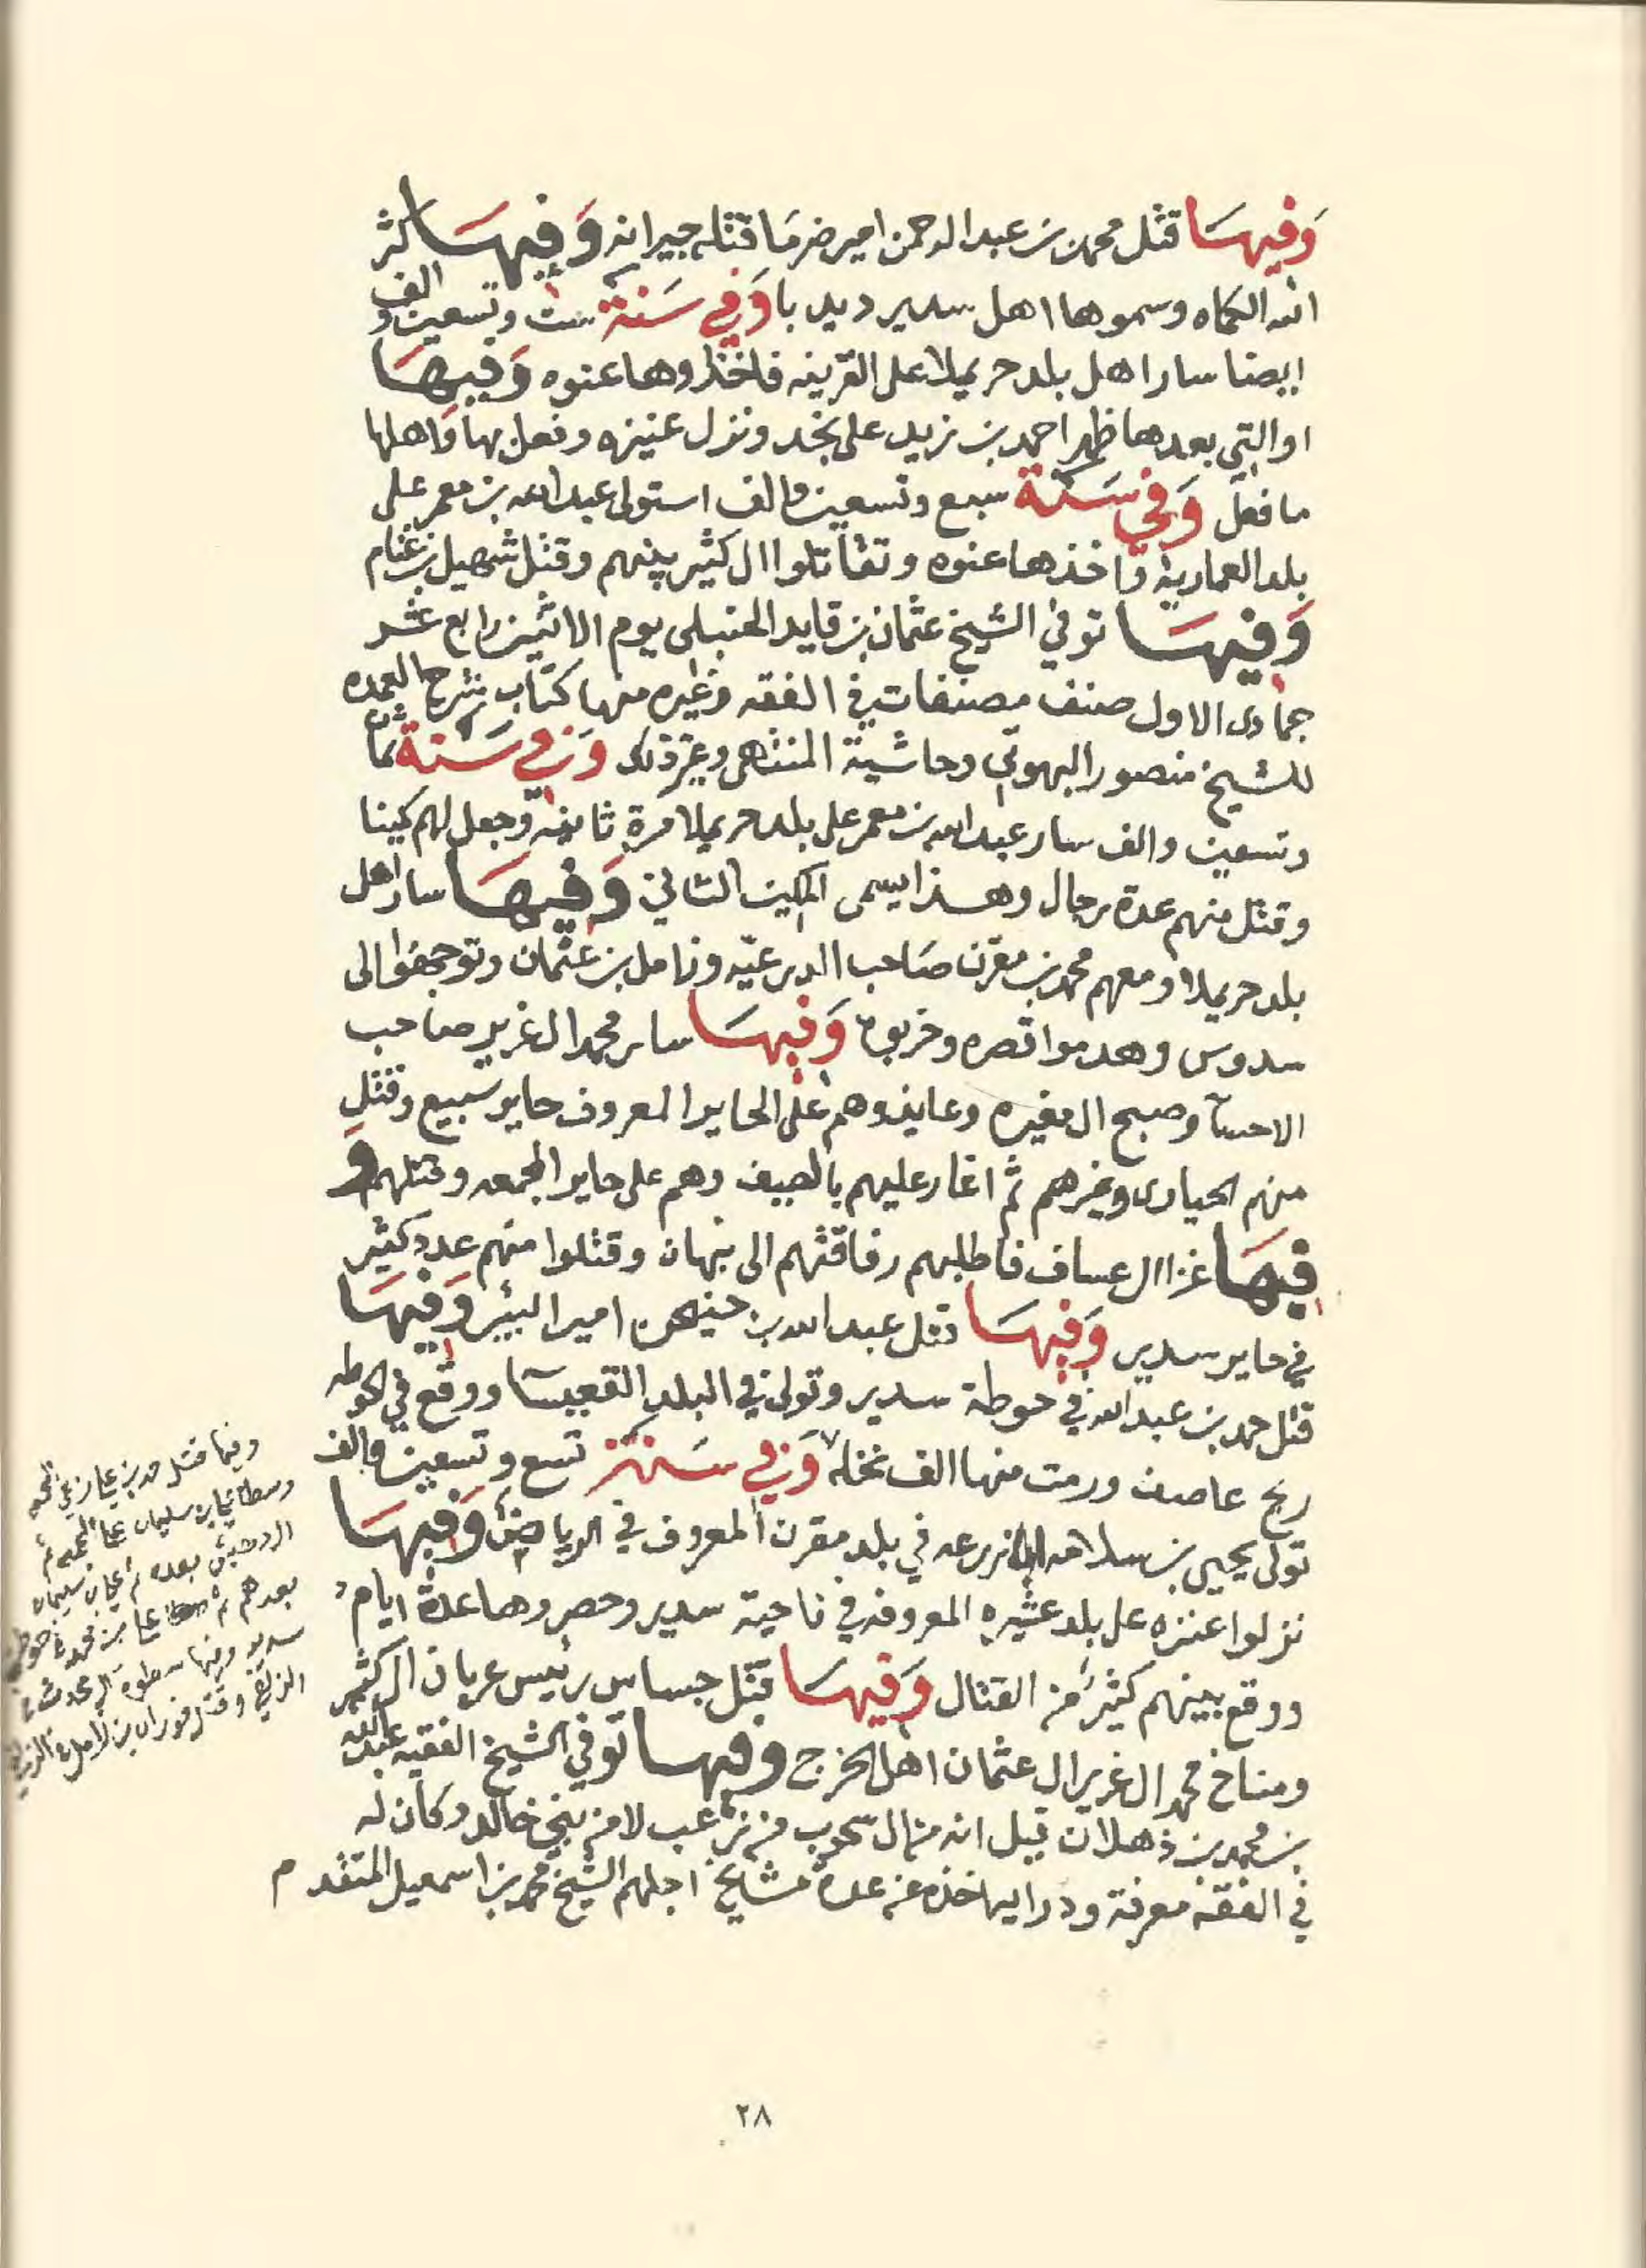 وفيها قتل محمد بن عبد الرحمن امير ضرما قتله جيرانه وفيها كثر
الله الكماه وسموها اهل سدير ديدبا وفي سنة ست وتسعين والف
ايضا سار اهل بلد حريملا على القرينه فاخذوها عنوه وفيها
او التي بعدها ظهر احمد بن زيد على نجد ونزل عنيزه وفعل بها واهلها
ما فعل وفي سنة سبع وتسعين والف استولى عبد الله بن معمر على
بلد العماريه واخذها عنوه وتقاتلوا ال كثير بينهم وقتل شهيل بن غنام
وفيها توفي الشيخ عثمان بن قايد الحنبلي يوم الاثنين رابع عشر
جمادى الاول صنف مصنفات في الفقه وغيره منها كتاب شرح العمده
للشيخ منصور البهوتي وحاشية المنتهى وغير ذلك وفي سنة ثمان
وتسعين والف سار عبد الله بن معمر على بلد حريملا مرة ثانيه وجعل لهم كمينا
وقتل منهم عدة رجال وهذا يسمى الكمين الثاني وفيها سار اهل
بلد حريملا ومعهم محمد بن مقرن صاحب الدرعيه وزامل بن عثمان وتوجهوا الى
سدوس وهدموا قصره وخربوه وفيها سار محمد ال غرير صاحب
الاحسا وصبح ال مغيره وعايذ وهم على الحاير المعروف حاير سبيع وقتل
منهم الحيارى وغيرهم ثم اغار عليهم بالصيف وهم على حاير المجمعه وقتلهم و
فيها غزا ال عساف فاطلبهم رفاقتهم الى نبهان وقتلوا منهم عدد كثير
في حاير سدير وفيها قتل عبد الله بن حنيحن امير البير وفيها
قتل حمد بن عبد الله في حوطة سدير وتولى في البلد القعيسا ووقع في الحوطه
ريح عاصف ورمت منها الف نخله وفي سنة تسع وتسعين والف
تولى يحيى بن سلامه ابا زرعه في بلد مقرن المعروف في الرياض وفيها
نزلوا عنزه على بلد عشيره المعروفه في ناحية سدير وحصروها عدة ايام
ووقع بينهم كثير من القتال وفيها قتل جساس رئيس عربان ال كثير
ومناخ محمد ال غرير ال عثمان اهل الخرج وفيها توفي الشيخ الفقيه عبد الله
بن محمد بن ذهلان قيل انه من ال سحوب من زعب لا من بني خالد وكان له
في الفقه معرفة ودرايه اخذه عن عدة مشايخ اجلهم الشيخ محمد بن اسمعيل المتقدم
وفيها قتل حمد بن علي راعي المجمعه
وسطا عثمان سليمان على
بعده
بعدهم
سدير وفيها سطوة ال محدث
الزلفي وقتل فوزان بن زامل في الزلفي
٢٨